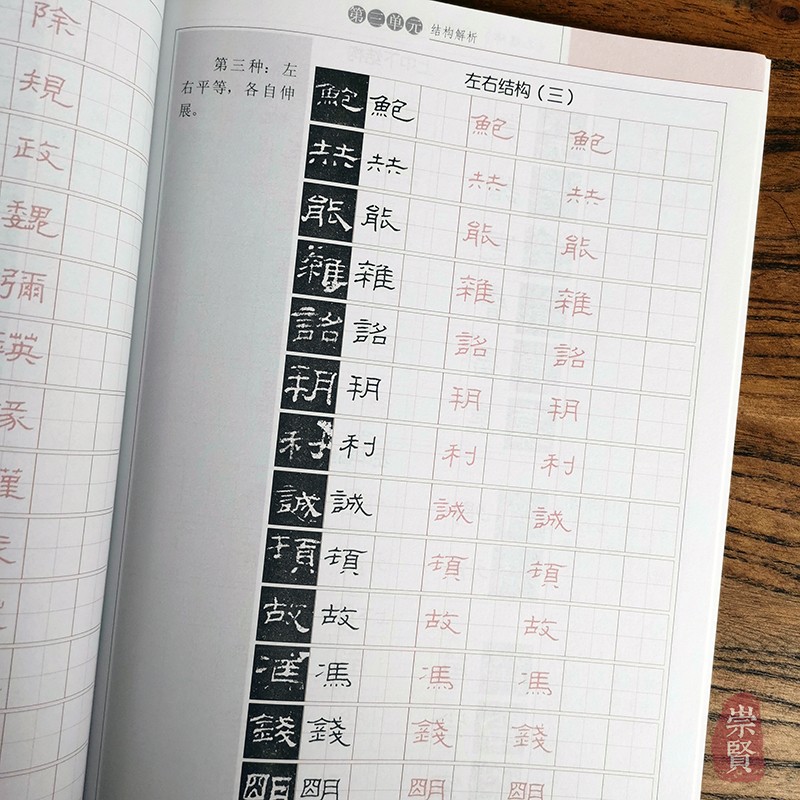 第三单元 结构解析
左右结构（三）
第三种：左
右平等，各自伸
展。
鮑 鮑 鮑 鮑
能 能 能
雜 雜 雜 雜
詺 詺 詺 詺
利 利 利 利
誠 誠 誠 誠
頊 頊 頊 頊
故 故 故 故
馮 馮 馮 馮
錢 錢 錢 錢
明 明 明 明
除
規
政
魏
彌
崇賢